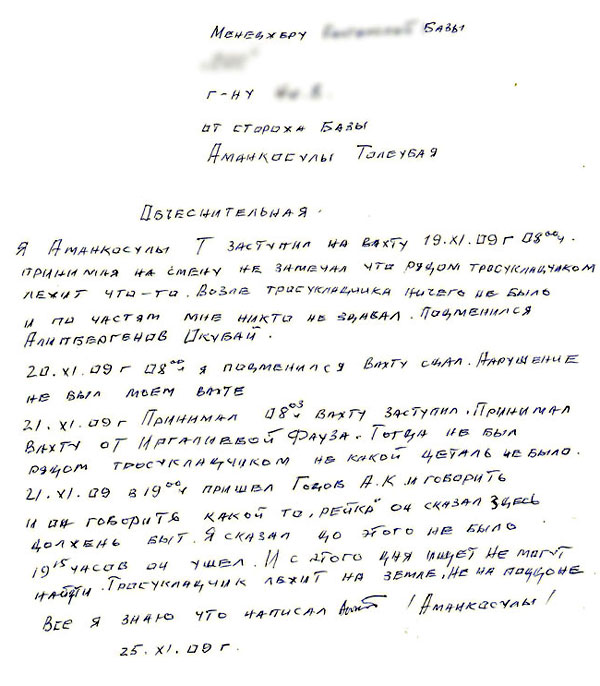 Менеджеру Базы
г-ну
от стороха Базы
Аманкосулы Толеубая
Объеснительная.
Я Аманкосулы Т заступил на вахту 19.XI.09г 08⁰⁰ч.
принимля на смену не замечал что рядом тросукладчиком
лежит что-то. Возле тросукладчика ничего не было
и по частям мне никто не здавал. Подменился
Алипбергенов Окубай.
20.XI.09г 08⁰⁰ч я подменился вахту сдал. Нарушение
не был моем вахте
21.XI.09г Принимал 08⁰³ вахту заступил. Принимал
вахту от Иргалиевой Фауза. Тогда не был
рядом тросукладчиком не какой деталь не было.
21.XI.09 в 19⁰⁰ч пришел Годов А.К и говорить
и он говорить какой то "рейка" он сказал здесь
должень быт. Я сказал до этого не было
19¹⁵ часов он ушел. И с этого дня ищет не могут
найти. Тросукладчик лежит на земле, не на поддоне
Все я знаю что написал ! Аманкосулы !
25.XI.09г.